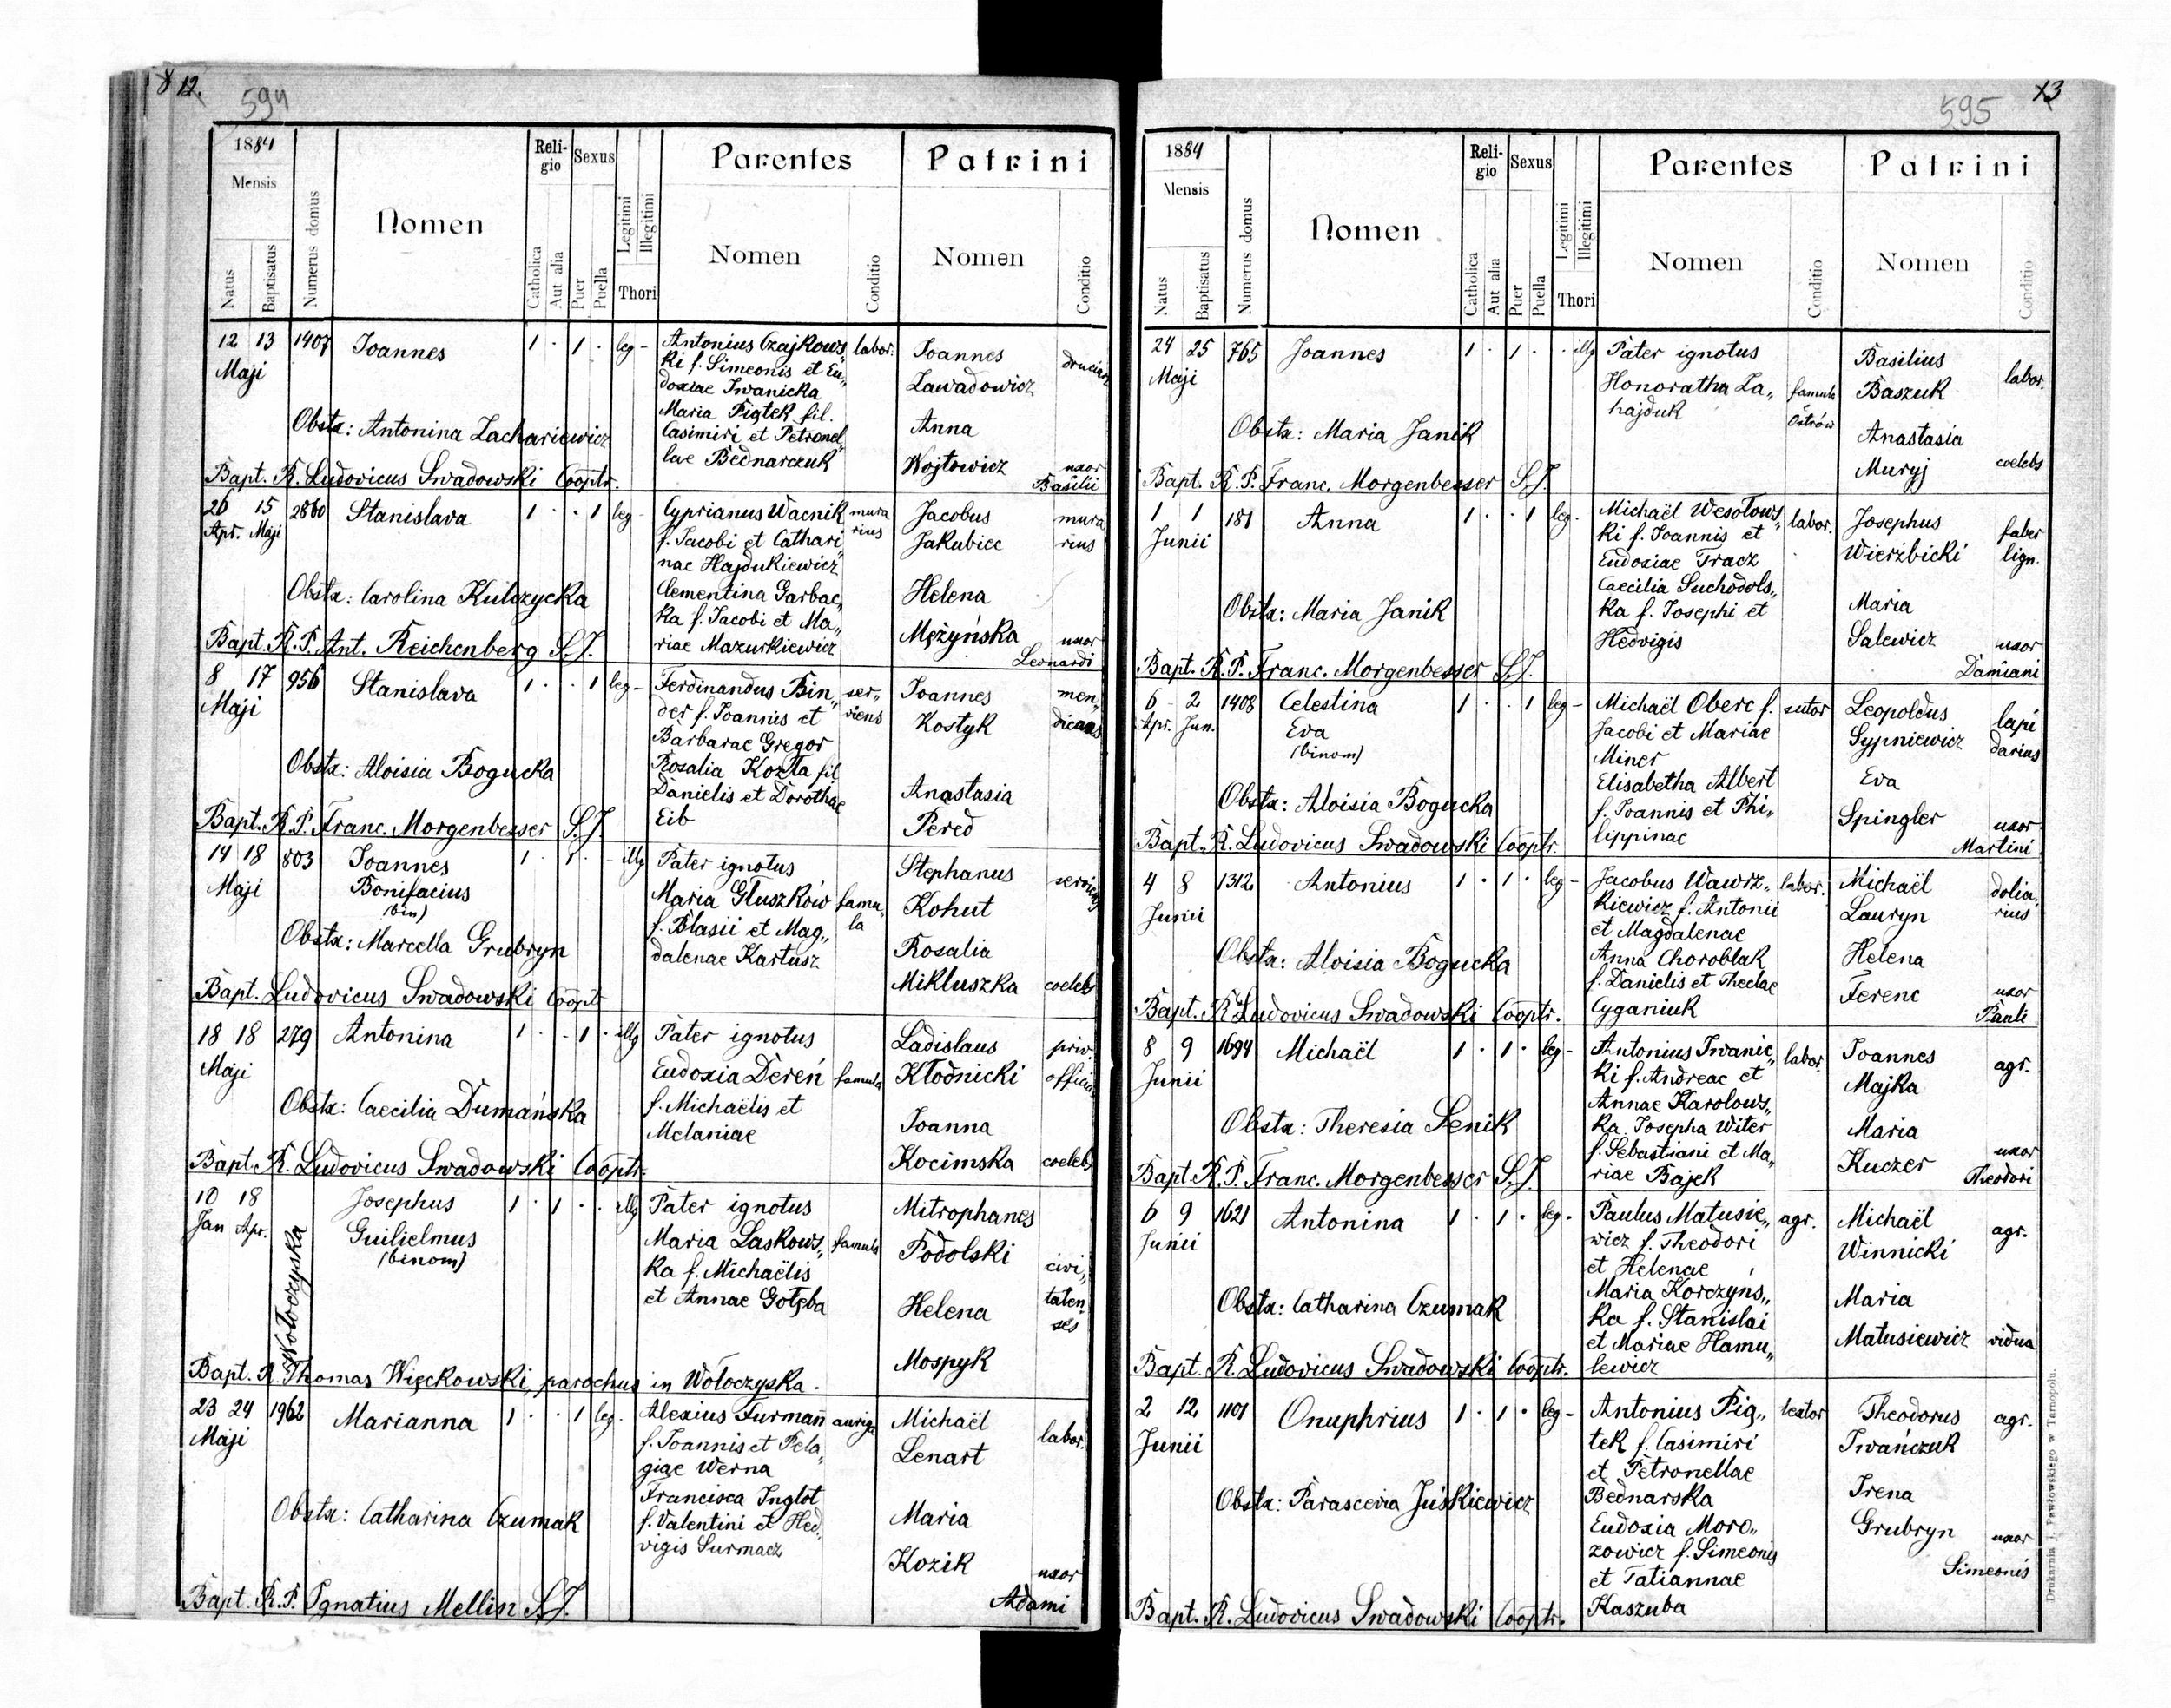 8 12.
594
1884
Mensis
Natus
Baptisatus
Numerus domus
Nomen
Religio
Catholica
Aut alia
Sexus
Puer
Puella
Legitimi
Illegitimi
Thori
Parentes
Nomen
Conditio
Patrini
Nomen
Conditio
12 13 1407 Joannes 1 · 1 · leg-
Maji
Antonius Czajkows„ labor.
ki f. Simeonis et Eu„
doxiae Iwanicka
Maria Piątek fil.
Casimiri et Petronel„
lae Bednarczuk
Joannes
Zawadowicz
Anna
Wojtowicz uxor
Basilii
Obstx: Antonina Zachariewicz
Bapt. R. Ludovicus Swadowski Cooptr.
26 15 2860 Stanislava 1 · · 1 leg-
Apr. Maji
Cyprianus Wacnik mura
f. Jacobi et Cathari„ rius
nae Hajdukiewicz
Clementina Garbac„
ka f. Jacobi et Ma„
riae Mazurkiewicz
Jacobus mura
Jakubiec rius
Helena
Mężyńska uxor
Leonardi
Obstx: Carolina Kulczycka
Bapt. R. P. Ant. Reichenberg S.J.
8 17 956 Stanislava 1 · · 1 leg-
Maji
Ferdinandus Bin„ ser„
der f. Joannis et viens
Barbarae Gregor
Rosalia Kozła fil
Danielis et Dorothae
Eib
Joannes men„
Kostyk dicans
Anastasia
Pered
Obstx: Aloisia Bogucka
Bapt. R. P. Franc. Morgenbesser S.J.
14 18 803 Joannes 1 · 1 · - illg
Maji Bonifacius
(bin)
Pater ignotus
Maria Głuszków famu„
f. Blasii et Mag„ la
dalenae Kartusz
Stephanus
Kohut
Rosalia
Mikluszka coelebs
Obstx: Marcella Grubryn
Bapt. Ludovicus Swadowski Cooptr
18 18 279 Antonina 1 · · 1 · illg
Maji
Pater ignotus
Eudoxia Dereń famula
f. Michaëlis et
Melaniae
Ladislaus priv.
Kłodnicki offici
Joanna
Kocimska coelebs
Obstx: Caecilia Dumańska
Bapt. R. Ludovicus Swadowski Cooptr.
10 18 Josephus 1 · 1 · · illg
Jan Apr. Guilielmus
(binom)
Wołoczyska
Pater ignotus
Maria Laskows„ famula
ka f. Michaëlis
et Annae Gołęba
Mitrophanes
Podolski civi„
taten
Helena ses
Mospyk
Bapt. R. Thomas Więckowski, parochus in Wołoczyska.
23 24 1962 Marianna 1 · · 1 leg.
Maji
Alexius Furmann auriga
f. Joannis et Pela„
giae Werna
Francisca Inglot
f. Valentini et Hed„
vigis Surmacz
Michaël labor.
Lenart
Maria
Kozik uxor
Adami
Obstx: Catharina Czumak
Bapt. R. P. Ignatius Mellin S.J.
13
595
1884
Mensis
Natus
Baptisatus
Numerus domus
Nomen
Religio
Catholica
Aut alia
Sexus
Puer
Puella
Legitimi
Illegitimi
Thori
Parentes
Nomen
Conditio
Patrini
Nomen
Conditio
24 25 765 Joannes 1 · 1 · · illg
Maji
Pater ignotus
Honoratha Za„ famula
hajduk Ostrów
Basilius
Baszuk labor.
Anastasia
Muryj coelebs
Obstx: Maria Janik
Bapt. R. P. Franc. Morgenbesser S.J.
1 1 181 Anna 1 · · 1 leg.
Junii
Michaël Wesołows„ labor.
ki f. Joannis et
Eudoxiae Tracz
Caecilia Suchodols„
ka f. Josephi et
Hedvigis
Josephus faber
Wierzbicki lign.
Maria
Salewicz uxor
Damiani
Obstx: Maria Janik
Bapt. R. P. Franc. Morgenbesser S.J.
6 2 1408 Celestina 1 · · 1 leg-
Apr. Jun. Eva
(binom)
Michaël Oberc f. sutor
Jacobi et Mariae
Miner
Elisabetha Albert
f. Joannis et Phi„
lippinae
Leopoldus lapi
Sypniewicz darius
Eva
Spingler uxor
Martini
Obstx: Aloisia Bogucka
Bapt. R. Ludovicus Swadowski Cooptr.
4 8 1312 Antonius 1 · 1 · leg-
Junii
Jacobus Wawrz„ labor.
kiewicz f. Antonii
et Magdalenae
Anna Choroblak
f. Danielis et Theclae
Cyganiuk
Michaël dolia„
Lauryn rius
Helena
Ferenc uxor
Pauli
Obstx: Aloisia Bogucka
Bapt. R Ludovicus Swadowski Cooptr.
8 9 1694 Michaël 1 · 1 · leg-
Junii
Antonius Iwanic„ labor.
ki f. Andreae et
Annae Karolows„
ka. Josepha Witer
f. Sebastiani et Ma„
riae Bajek
Joannes agr.
Majka
Maria
Kuczer uxor
Theodori
Obstx: Theresia Senik
Bapt. R. P. Franc. Morgenbesser S.J.
6 9 1621 Antonina 1 · 1 · leg.
Junii
Paulus Matusie„ agr.
wicz f. Theodori
et Helenae
Maria Korczyńs„
ka f. Stanislai
et Mariae Hamu„
lewicz
Michaël agr.
Winnicki
Maria
Matusiewicz vidua
Obstx: Catharina Czumak
Bapt. R. Ludovicus Swadowski Cooptr.
2 12 1101 Onuphrius 1 · 1 · leg-
Junii
Antonius Pią„
tek f. Casimiri
et Petronellae
Bednarska
Eudoxia Moro„
zowicz f. Simeonis
et Tatiannae
Kaszuba
Theodorus agr.
Iwańczuk
Irena
Grubryn uxor
Simeonis
Obstx: Parascevia Juśkiewicz
Bapt. R. Ludovicus Swadowski Cooptr.
Drukarnia J. Pawłowskiego w Tarnopolu.